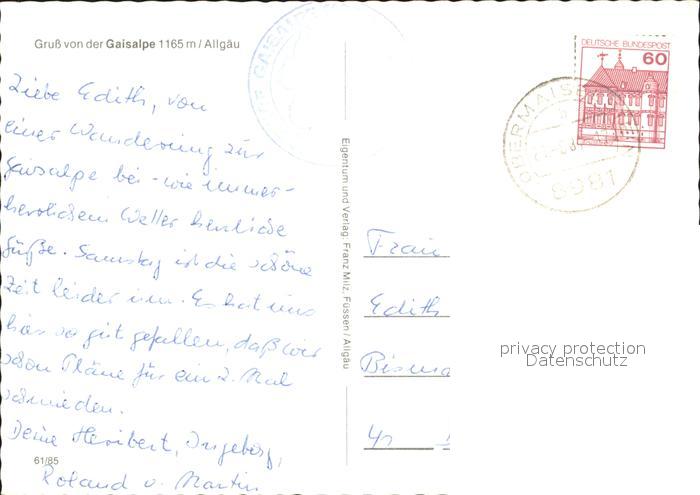 Gruß von der Gaisalpe 1165 m / Allgäu
GAISALPE
DEUTSCHE BUNDESPOST
60
OBERMAISE
8981
Liebe Edith, von
einer Wanderung zur
Gaisalpe bei - wie immer -
herrlichem Wetter herzliche
Grüße. Samstag ist die schöne
Zeit leider um. Es hat uns
hier so gut gefallen, daß wir
schon Pläne für ein 2. Mal
schmieden.
Deine Heribert, Ingeborg,
Roland u. Martin
61/85
Eigentum und Verlag: Franz Milz, Füssen / Allgäu
Frau
Edith
Bisma
privacy protection
Datenschutz